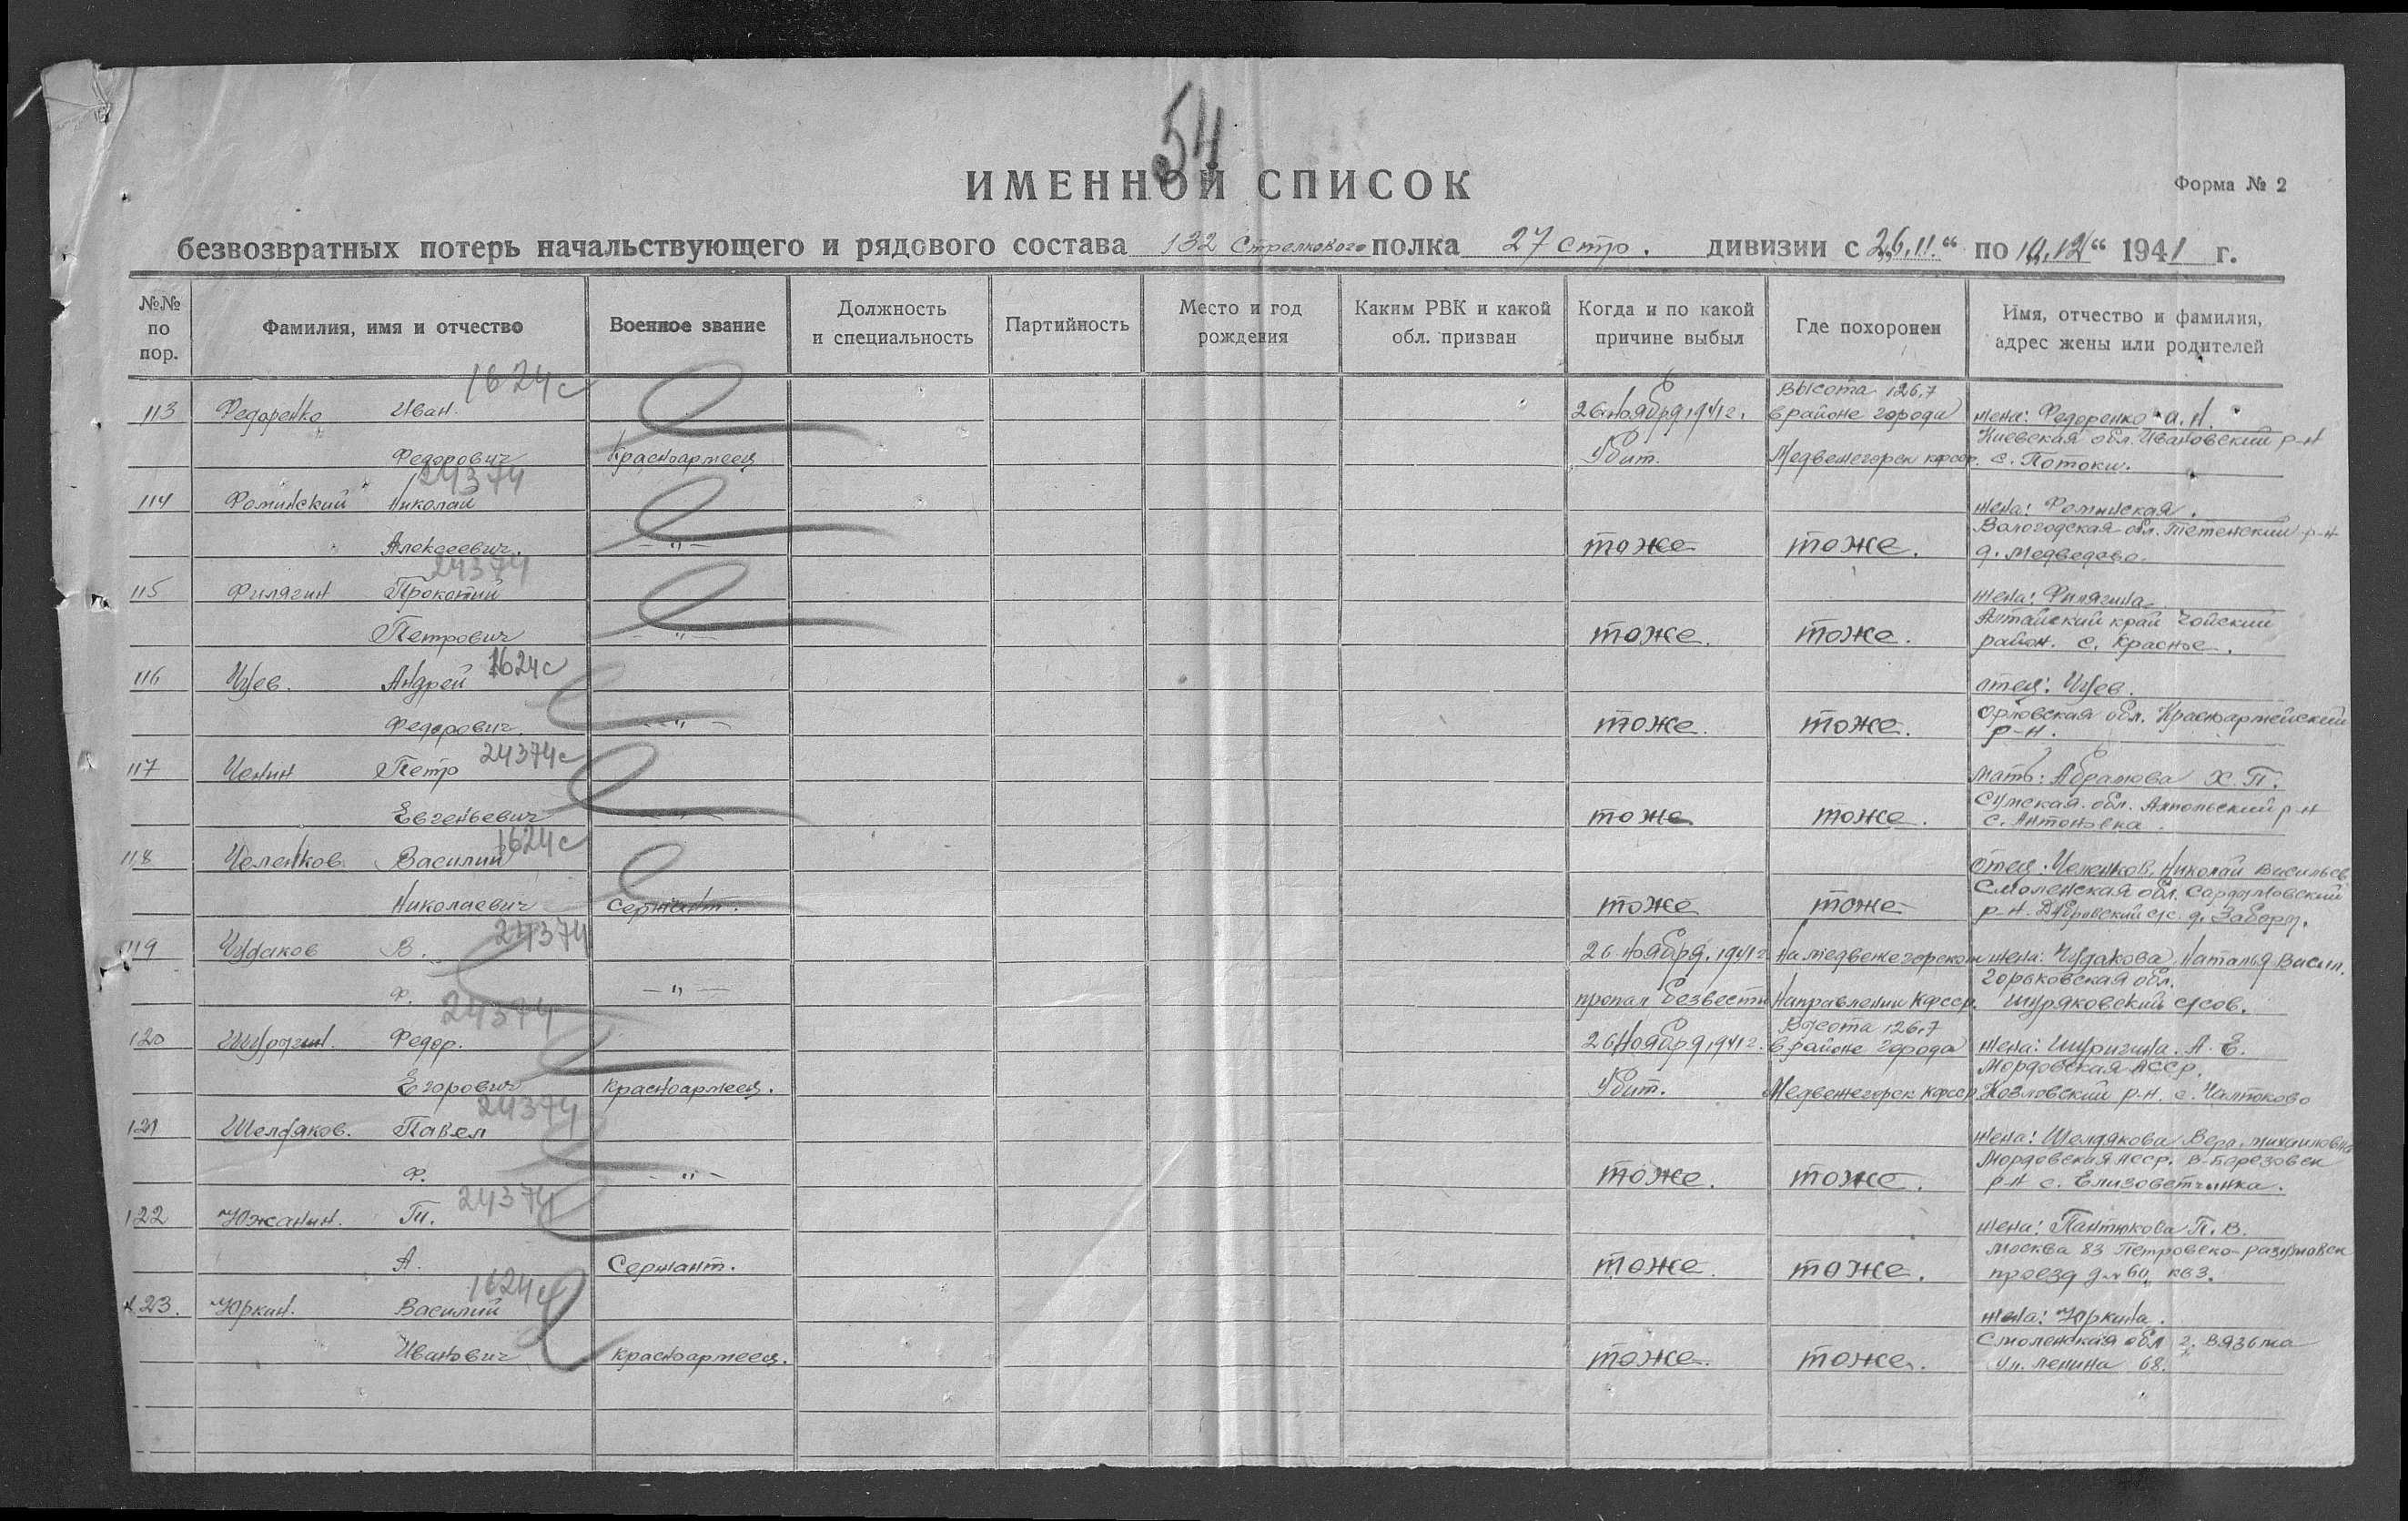 54
ИМЕННОЙ СПИСОК
Форма № 2
безвозвратных потерь начальствующего и рядового состава 132 Стрелкового полка 27 стр. дивизии с „26.11.“ по „10.12“ 1941 г.
№№ по пор.
Фамилия, имя и отчество
Военное звание
Должность и специальность
Партийность
Место и год рождения
Каким РВК и какой обл. призван
Когда и по какой причине выбыл
Где похоронен
Имя, отчество и фамилия, адрес жены или родителей
1624с
Высота 126,7
113 Федоренко Иван. 26 ноября 1941 г. в районе города жена: Федоренко А. Н.
Киевская обл. Ивановский р-н
Федорович Красноармеец Убит. Медвежегорск кфсср. с. Потоки.
24374
114 Фоминский Николай жена: Фоминская.
Вологодская обл. Тотемский р-н
Алексеевич. — " — тоже тоже. д. Медведево.
24374
115 Филягин Прокопий жена: Филягина.
Алтайский край Чойский
Петрович — " — тоже. тоже. район. с. Красное.
1624с
116 Цуев. Андрей отец: Цуев.
Орловская обл. Красноармейский
Федорович. — " — тоже. тоже. р-н.
24374с
117 Ченин Петр мать: Абрамова Х. П.
Сумская обл. Ямпольский р-н
Евгеньевич — " — тоже тоже. с. Антоновка.
1624с
118 Челенков Василий отец: Челенков, Николай Васильев
Смоленская обл.
Николаевич Сержант. тоже тоже р-н. с/с. д. Заборы.
24374
119 Чудаков В. 26 ноября. 1941 г. На медвежегорском жена: Чудакова, Наталья Васил.
Горьковская обл.
Ф. — " — пропал безвести Направлении Кфсср. Шуряковский с/сов.
24374
Высота 126,7
120 Шуригин. Федор. 26 ноября 1941 г. в районе города жена: Шуригина. А. Е.
Мордовская АССР.
Егорович Красноармеец. Убит. Медвежегорск Кфсср Козловский р-н. с.
24374
121 Шелдяков. Павел жена: Шелдякова Вера. Михайловна
Мордовская АССР.
Ф. — " — тоже. тоже. р-н с.
24374
122 Южанин. Т. жена: Пантюкова П. В.
Москва 83 Петровско-разумовск
А. Сержант. тоже. тоже. проезд д. 60, кв 3.
1624с
123. Юркин. Василий жена: Юркина.
Смоленская обл г. Вязьма
Иванович Красноармеец. тоже. тоже. ул. Ленина 68.